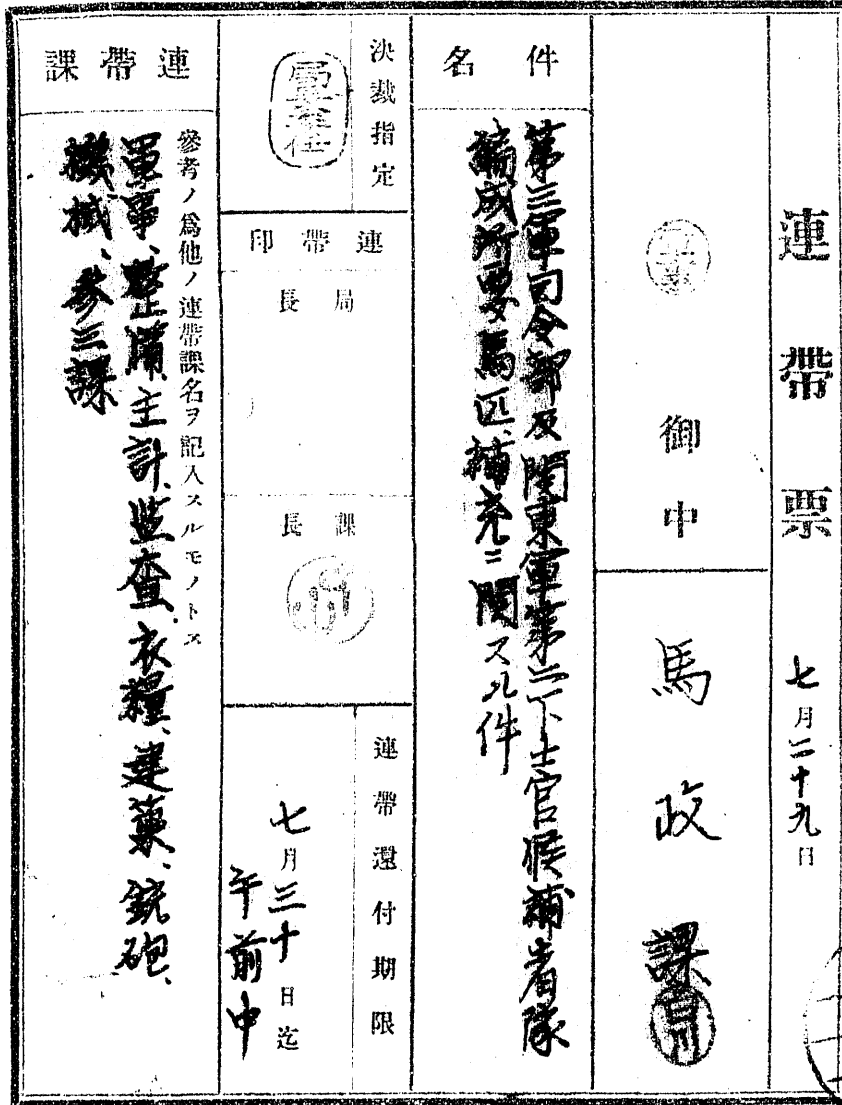 連帶票
七月二十九日
御中
馬政課
白川
件名
第三軍司令部及関東軍第二下士官候補者隊
編成所要馬匹補充ニ関スル件
決裁指定
連帶印
局長
課長
連帶還付期限
七月三十日迄
午前中
連帶課
參考ノ爲他ノ連帶課名ヲ記入スルモノトス
軍事、整備、主計、監査、衣糧、建築、銃砲、
機械、参三課